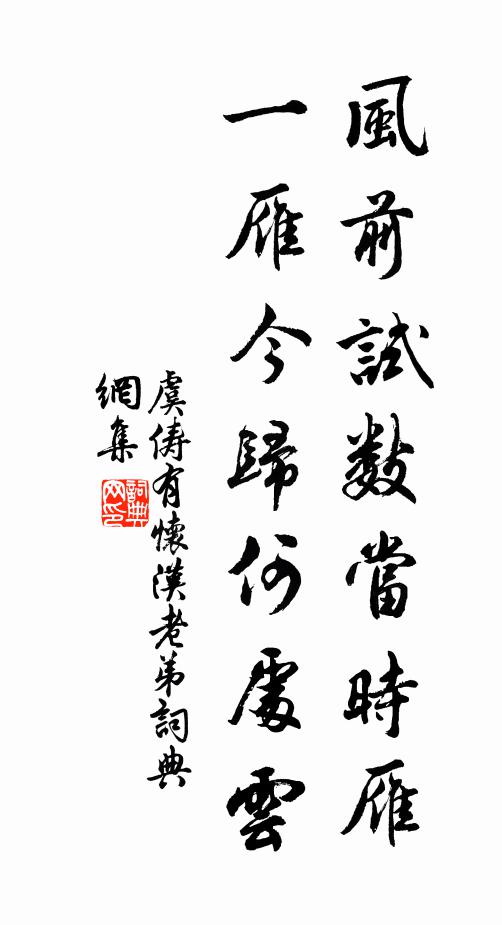 風前試數當時雁
一雁今歸何處雲
虞儔有懷漢老弟詞典
網集
詞典
网印